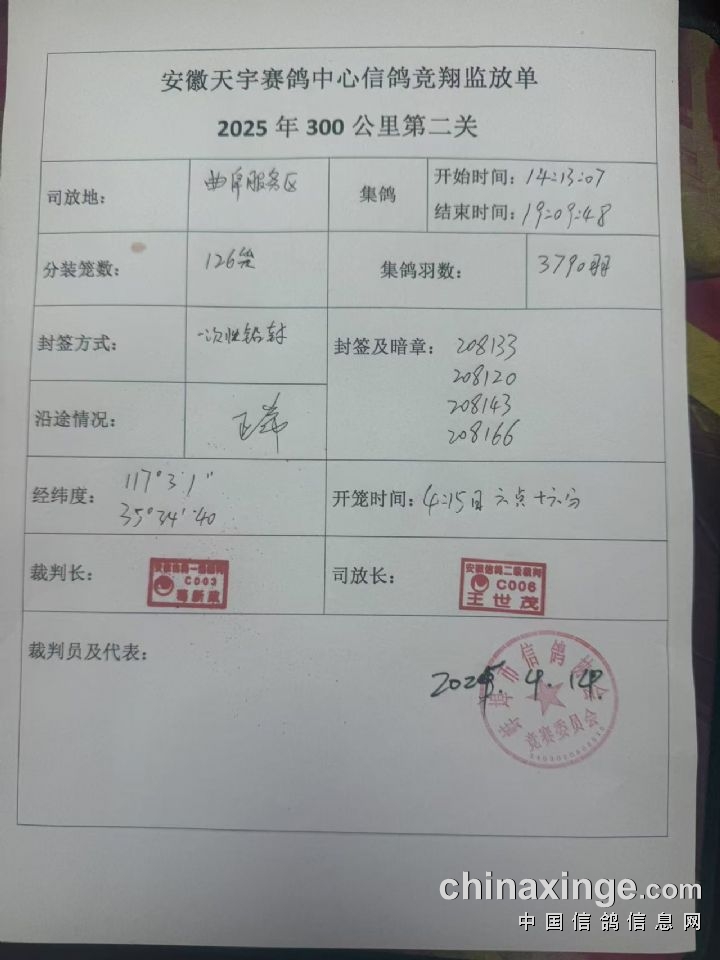 安徽天宇赛鸽中心信鸽竞翔监放单
2025 年 300 公里第二关
司放地： 曲阜服务区
集鸽
开始时间：14:13:07
结束时间：19:09:48
分装笼数： 126笼
集鸽羽数： 3790羽
封签方式： 一次性铅封
封签及暗章： 208133
208120
208143
208166
沿途情况： 正常
经纬度： 117°3′1″
35°34′40
开笼时间：4:15日六点十六分
裁判长：
C003
司放长：
安徽信鸽二级裁判
C006
王世茂
裁判员及代表：
2025. 4. 14.
市信鸽协会
竞赛委员会
chinaxinge.com
中国信鸽信息网